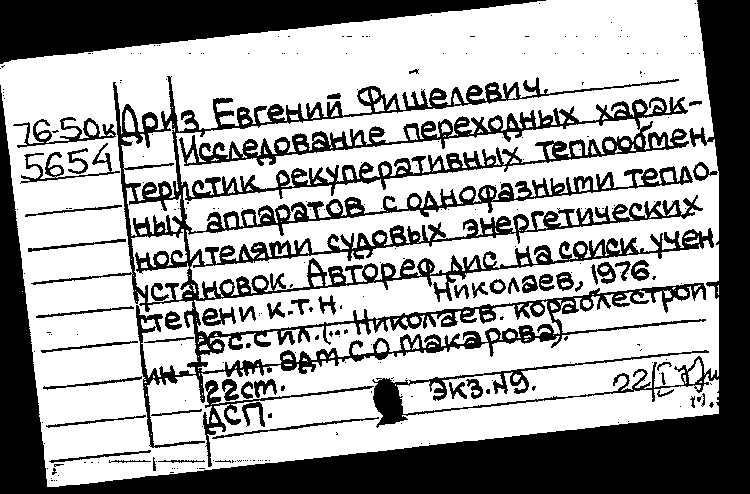 76-50к Дриз, Евгений Фишелевич.
5654 Исследование переходных харак-
теристик рекуперативных теплообмен-
ных аппаратов с однофазными тепло-
носителями судовых энергетических
установок. Автореф. дис. на соиск. учен.
степени к.т.н. Николаев, 1976.
26с. с ил. (... Николаев. кораблестроит
ин-т им. адм. С.О. Макарова).
22ст.
ДСП. Экз. №9. 22/I